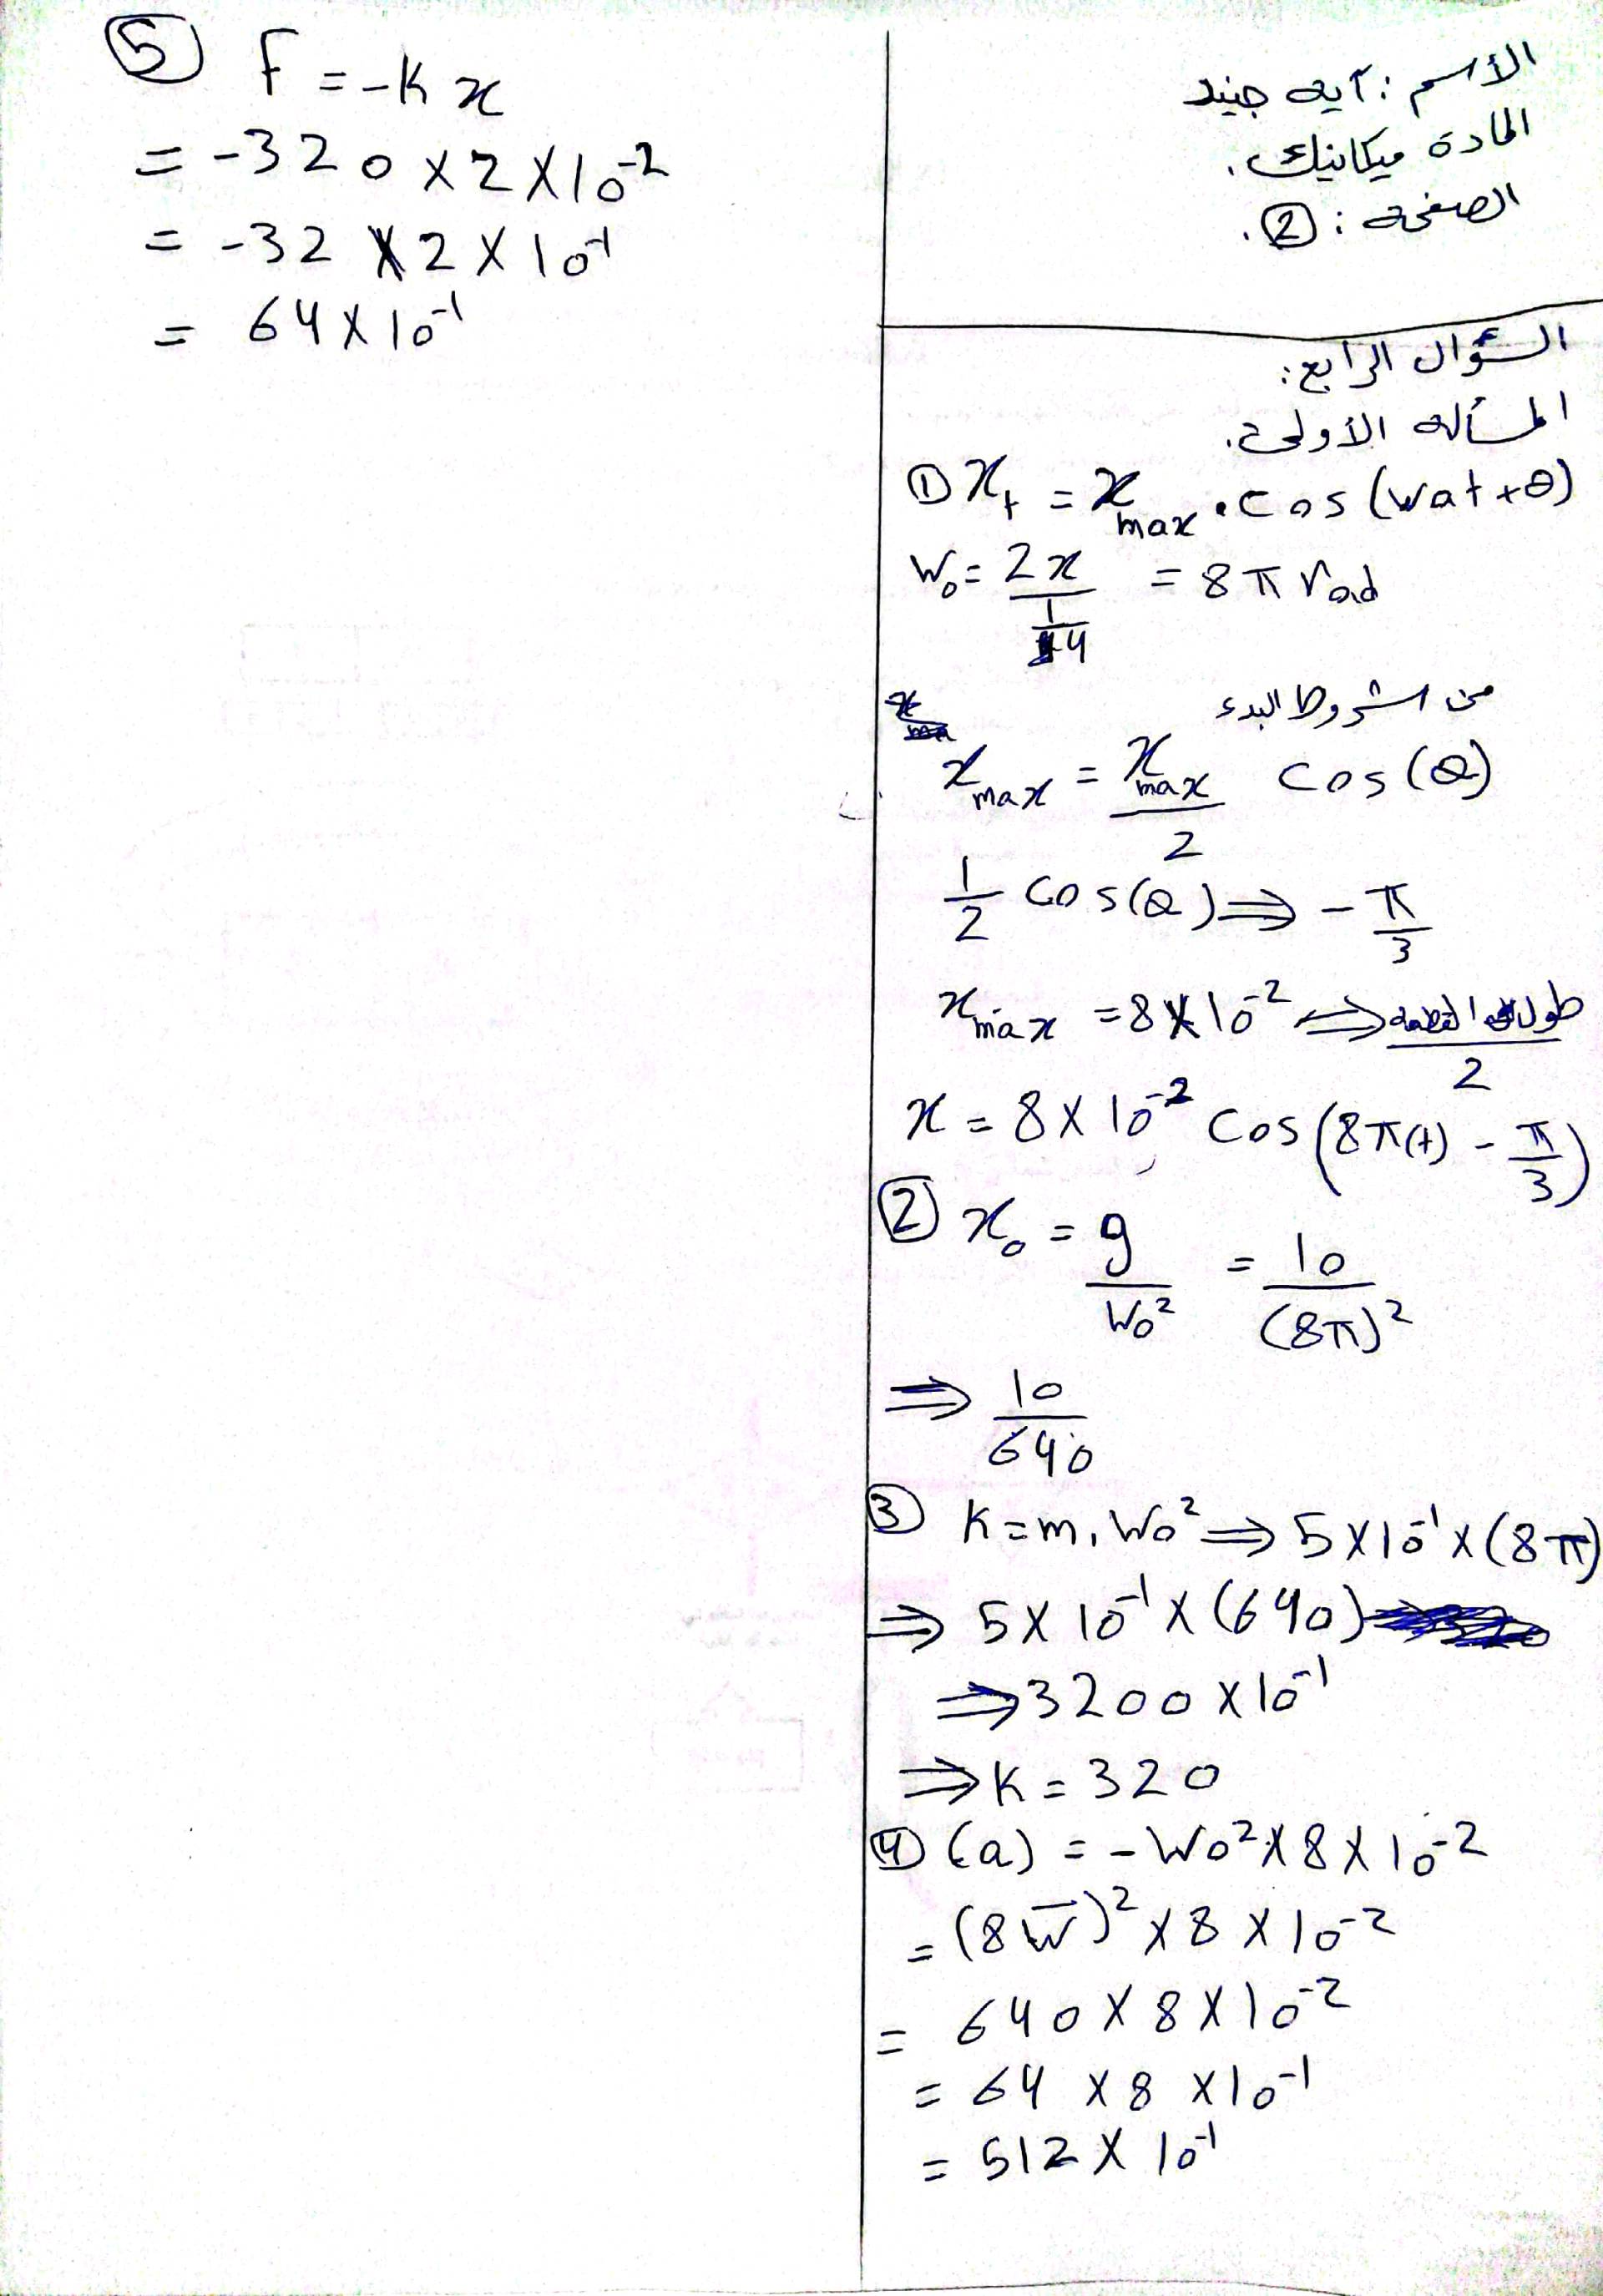 الأسم: آيه جنيد
المادة ميكانيك.
الصفحه: ②.
السؤال الرابع:
المسأله الأولى.
① x_t = x_max . cos (wat + θ)
W₀ = 2x / (1/4) = 8π rad
من الشروط البدء
x_max = x_max / 2 cos (θ)
1/2 cos(θ) ⇒ - π/3
x_max = 8 × 10⁻² ⇒ طول القطعه / 2
x = 8 × 10⁻² cos (8π(t) - π/3)
② x₀ = g / W₀² = 10 / (8π)²
⇒ 10 / 640
③ K = m . W₀² ⇒ 5 × 10⁻¹ × (8π)
⇒ 5 × 10⁻¹ × (640)
⇒ 3200 × 10⁻¹
⇒ K = 320
④ (a) = - W₀² × 8 × 10⁻²
= (8π)² × 8 × 10⁻²
= 640 × 8 × 10⁻²
= 64 × 8 × 10⁻¹
= 512 × 10⁻¹
⑤ F = -K x
= -320 × 2 × 10⁻²
= -32 × 2 × 10⁻¹
= 64 × 10⁻¹